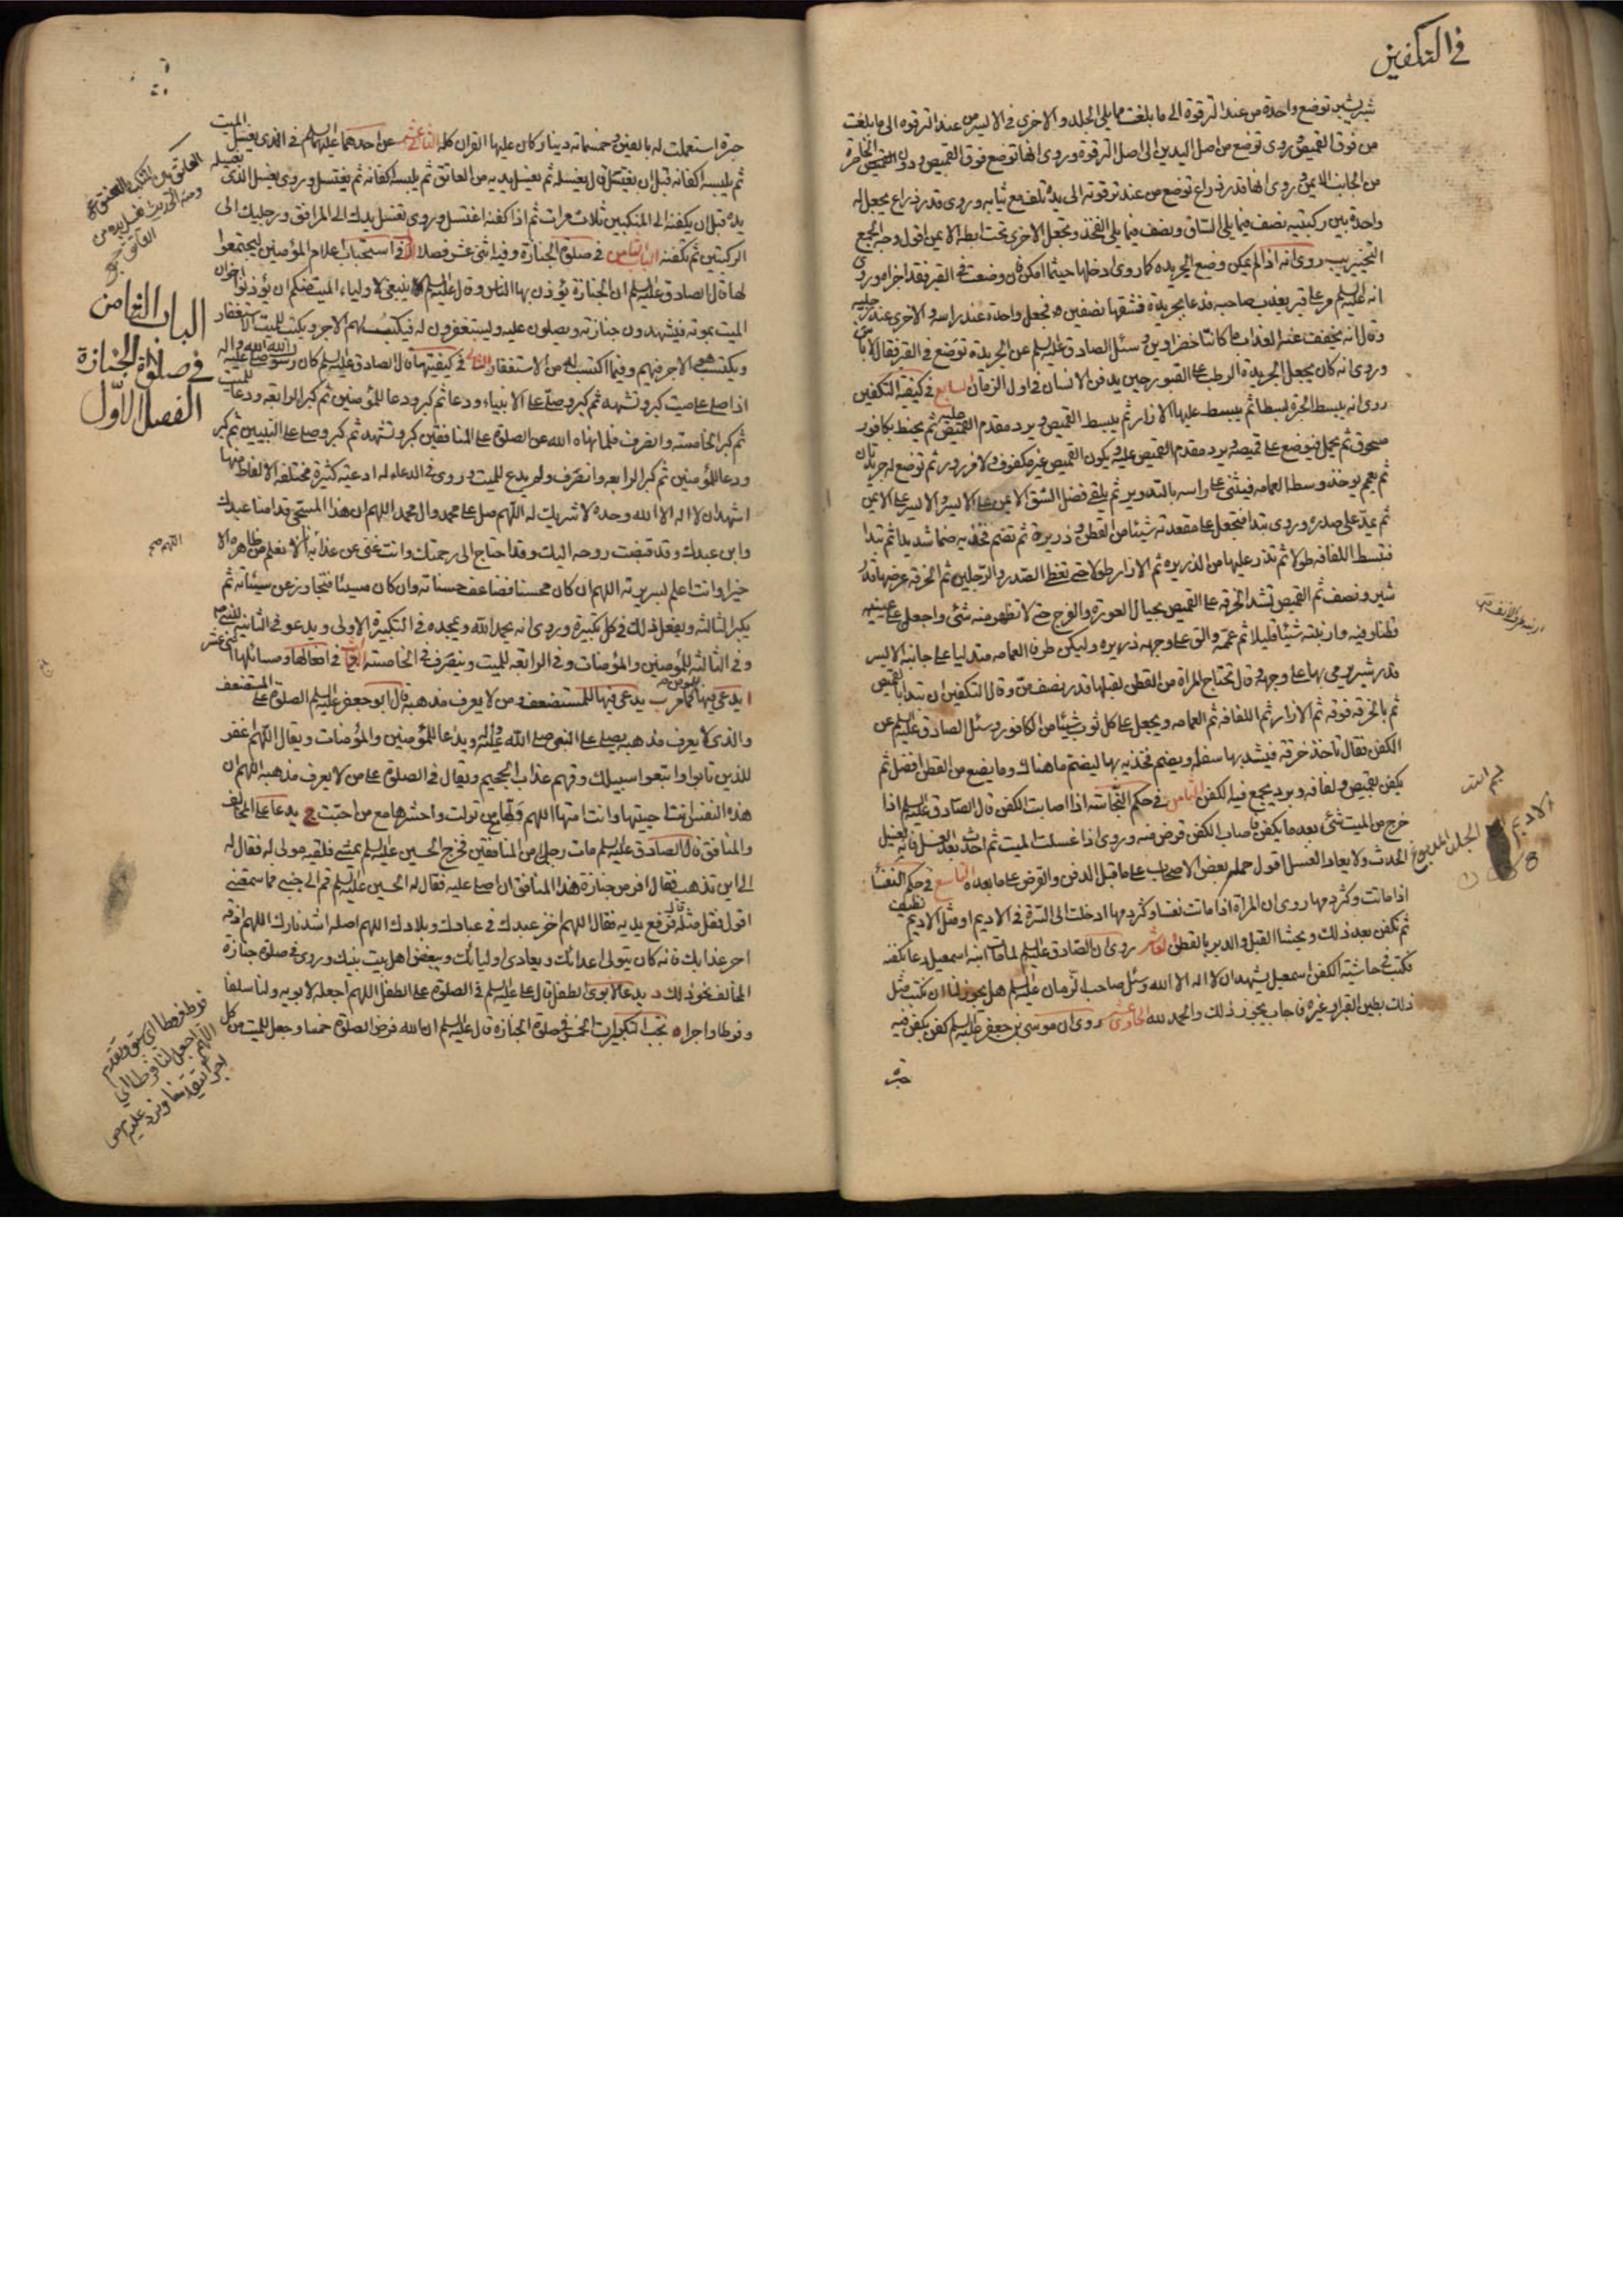 في التكفين
شبر بشبر توضع واحدة من عند الترقوة الى ما بلغت مما يلى الجلد والاخرى في الايسر من عند الترقوه الى ما بلغت
من فوق القميص وروى توضع من اصل اليدين الى اصل الترقوة وروى انها توضع فوق القميص ودون الخاصرة
من الجانب الايمن وروى انها قدر ذراع توضع من عند ترقوته الى يده تلف مع ثيابه وروى قدر ذراع يجعل له
واحدة بين ركبتيه نصف فيما يلى الساق ونصف فيما يلى الفخذ وتجعل الاخرى تحت ابطه الايمن اقول وجه الجمع
التخيير يب روى انه اذا لم يمكن وضع الجريده كما روى ادخلها حيثما امكن فان وضعت في القبر فقد اجزا وروى
انه عليه السلم مر على قبر يعذب صاحبه فدعا بجريدة فشقها نصفين فجعل واحدة عند راسه والاخرى عند رجليه
وقال انه يخفف عنه العذاب ما كانتا خضراوين وسئل الصادق عليه السلم عن الجريدة توضع في القبر فقال لا باس
وروى انه كان يجعل الجريدة الرطبة على القبور حين يدفن الانسان في اول الزمان السابع في كيفية التكفين
روى انه يبسط الحبرة بسطا ثم يبسط عليها الازار ثم يبسط القميص ويرد مقدم القميص عليه ثم يحنط بكافور
مسحوق ثم يحمل فيوضع على قميصه ويرد مقدم القميص عليه ويكون القميص غير مكفوف ولا مزرور ثم توضع له جريدتان
ثم يعمم يوخذ وسط العمامه فيثنى على راسه بالتدوير ثم يلقى فضل الشق الايمن على الايسر والايسر على الايمن
ثم يمد على صدره وروى تبدا فتجعل على مقعدته شيئا من القطن وذريرة ثم تضم فخذيه ضما شديدا ثم تبدا
فتبسط اللفافه طولا ثم تذر عليها من الذريره ثم الازار طولا حتى تغطى الصدر والرجلين ثم الخرقه عرضها قدر
شبر ونصف ثم القميص تشد الخرقه على القميص بحيال العورة والفرج حتى لا تظهر منه شئ واجعل على عينيه
قطنا وفيه وارنبته شيئا قليلا ثم عممه والق على وجهه ذريره وليكن طرف العمامه متدليا على جانبه الايسر
قدر شبر يرمى بها على وجهه وقال تحتاج المراة من القطن لقبلها قدر نصف من وقال التكفين ان تبدا بالقميص
ثم بالخرقه فوقه ثم الازار ثم اللفافه ثم العمامه ويجعل على كل ثوب شيئا من الكافور وسئل الصادق عليه السلم عن
الكفن فقال تاخذ خرقه فيشد بها سفله ويضم فخذيه بها ليضم ما هناك وما يضع من القطن افضل ثم
يكفن بقميص ولفافه وبرد يجمع فيه الكفن الثامن في حكم النجاسة اذا اصابت الكفن قال الصادق عليه السلم اذا
خرج من الميت شئ بعد ما يكفن فاصاب الكفن قرض منه وروى اذا غسلت الميت ثم احدث بعد الغسل فانه يغسل
الحدث ولا يعاد الغسل اقول حمله بعض الاصحاب على ما قبل الدفن والقرض على ما بعده التاسع في حكم النفسا
اذا ماتت وكثر دمها روى ان المراة اذا ماتت نفسا وكثر دمها ادخلت الى السرة في الاديم او مثل الاديم نظيف
ثم تكفن بعد ذلك ويحشا القبل والدبر بالقطن العاشر روى ان الصادق عليه السلم لما مات ابنه اسمعيل دعا بكفنه
فكتب في حاشية الكفن اسمعيل يشهد ان لا اله الا الله وسئل صاحب الزمان عليه السلم هل يجوز لنا ان نكتب مثل
ذلك بطين القبر او غيره فاجاب يجوز ذلك والحمد لله الحادي عشر روى ان موسى بن جعفر عليه السلم كفن بكفن فيه
حبرة
الاديم الجلد المدبوغ
حبرة استعملت له بالفين وخمسمائه دينار كان عليها القران كله الثاني عشر عن احدهما عليهما السلم في الذي يغسل الميت
ثم يلبسه اكفانه قبل ان يغتسل قال يغسله ثم يغسل يديه من العاتق ثم يلبسه اكفانه ثم يغتسل وروى يغسل الذى يغسله
يده قبل ان يكفنه الى المنكبين ثلاث مرات ثم اذا كفنه اغتسل وروى تغسل يدك الى المرافق ورجليك الى
الركبتين ثم تكفنه الباب الثامن في صلوة الجنازة وفيه اثنى عشر فصلا الاول في استحباب اعلام المؤمنين ليجتمعوا
لها قال الصادق عليه السلم ان الجنازة يؤذن بها الناس وقال عليه السلم ينبغي لاولياء الميت منكم ان يؤذنوا اخوان
الميت بموته فيشهدون جنازته ويصلون عليه ويستغفرون له فيكتب لهم الاجر ويكتب للميت الاستغفار
ويكتسب هو الاجر فيهم وفيما اكتسب له من الاستغفار الثاني في كيفيتها قال الصادق عليه السلم كان رسول الله صلى الله عليه واله
اذا صلى على ميت كبر وتشهد ثم كبر وصلى على الانبياء ودعا ثم كبر ودعا للمؤمنين ثم كبر الرابعه ودعا للميت
ثم كبر الخامسه وانصرف فلما نهاه الله عن الصلوة على المنافقين كبر وتشهد ثم كبر وصلى على النبيين ثم كبر
ودعا للمؤمنين ثم كبر الرابعه وانصرف ولم يدع للميت وروى في الدعاء له ادعية كثيرة مختلفه الالفاظ منها
اشهد ان لا اله الا الله وحده لا شريك له اللهم صل على محمد وال محمد اللهم ان هذا المسجى قدامنا عبدك
وابن عبدك وقد قبضت روحه اليك وقد احتاج الى رحمتك وانت غنى عن عذابه انا لا نعلم من ظاهره الا
خيرا وانت اعلم بسريرته اللهم ان كان محسنا فضاعف حسناته وان كان مسيئا فتجاوز عن سيئاته ثم
يكبر الثالثه ويفعل ذلك في كل تكبيرة وروى انه يحمد الله ويمجده في التكبيرة الاولى ويدعو في الثانيه للنبي
وفي الثالثه للمؤمنين والمؤمنات وفي الرابعه للميت وينصرف في الخامسه الثالث في افعالها ومسائلها اثنى عشر
ا يدعى فيها للمؤمن كما مر ب يدعى فيها للمستضعف ومن لا يعرف مذهبه قال ابو جعفر عليه السلم الصلوة على المستضعف
والذى لا يعرف مذهبه يصلى على النبى صلى الله عليه واله ويدعا للمؤمنين والمؤمنات ويقال اللهم اغفر
للذين تابوا واتبعوا سبيلك وقهم عذاب الجحيم ويقال في الصلوة على من لا يعرف مذهبه اللهم ان
هذه النفس انت احييتها وانت امتها اللهم ولها من تولت واحشرها مع من احبت ج يدعا على المخالف
والمنافق قال الصادق عليه السلم مات رجل من المنافقين فخرج الحسين عليه السلم يمشى فلقيه مولى له فقال له
الى اين تذهب فقال افر من جنازة هذا المنافق ان اصلى عليه فقال له الحسين عليه السلم قم الى جنبى فما سمعتنى
اقول فقل مثله قال فرفع يديه فقال اللهم اخز عبدك في عبادك وبلادك اللهم اصله اشد نارك اللهم اذقه
احر عذابك فانه كان يتولى اعدائك ويعادى اوليائك ويبغض اهل بيت نبيك وروى في صلوة جنازة
المخالف نحو ذلك د يدعا لابوى الطفل قال على عليه السلم في الصلوة على الطفل اللهم اجعله لابويه ولنا سلفا
وفرطا واجرا ه تجب التكبيرات الخمس في صلوة الجنازة قال عليه السلم ان الله فرض الصلوة خمسا وجعل للميت من كل
الباب الثامن
في صلوة الجنازة
الفصل الاول